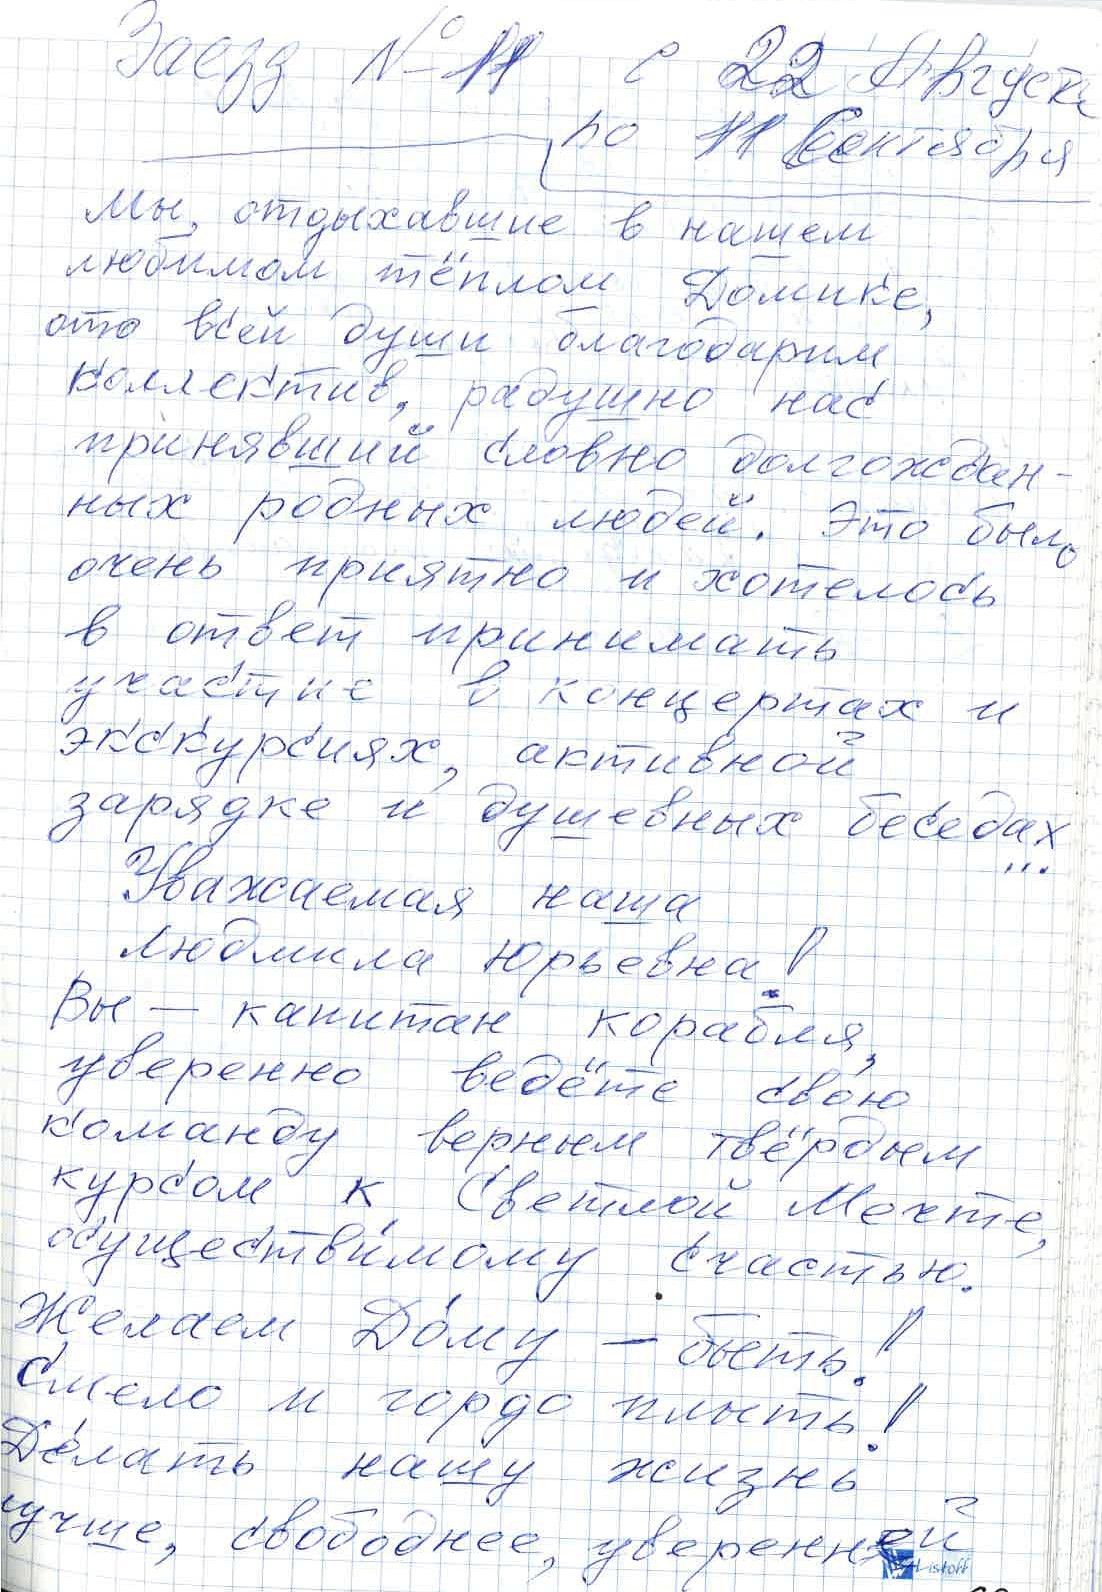 Заезд № 11 с 22 Августа
по 11 Сентября
Мы, отдыхавшие в нашем
любимом тёплом Домике,
ото всей души благодарим
коллектив, радушно нас
принявший словно долгождан-
ных родных людей. Это было
очень приятно и хотелось
в ответ принимать
участие в концертах и
экскурсиях, активной
зарядке и душевных беседах
...
Уважаемая наша
Людмила Юрьевна!
Вы – капитан корабля,
уверенно ведёте свою
команду верным твёрдым
курсом к Светлой Мечте,
осуществимому счастью.
Желаем Дому – быть!
Смело и гордо плыть!
Делать нашу жизнь
лучше, свободнее, уверенней
Listoff